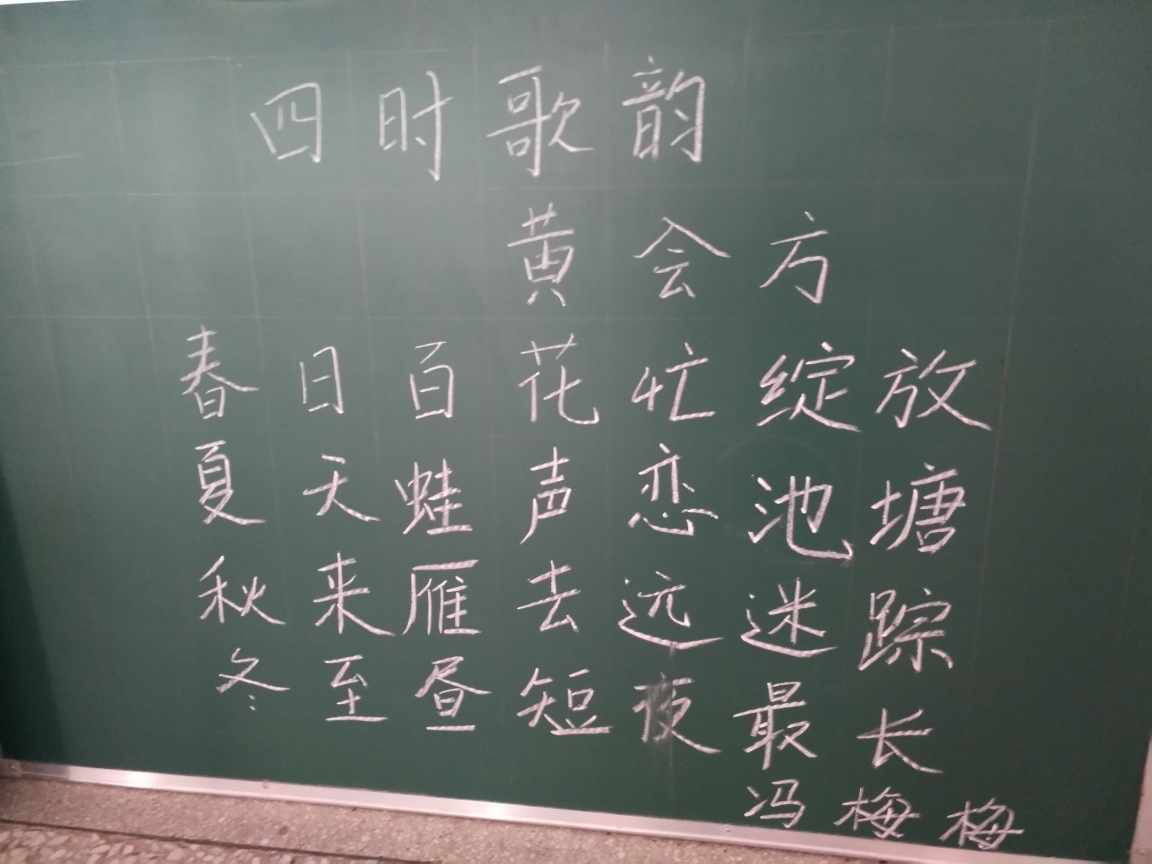 四时歌韵
黄会方
春日百花忙绽放
夏天蛙声恋池塘
秋来雁去远迷踪
冬至昼短夜最长
冯梅梅